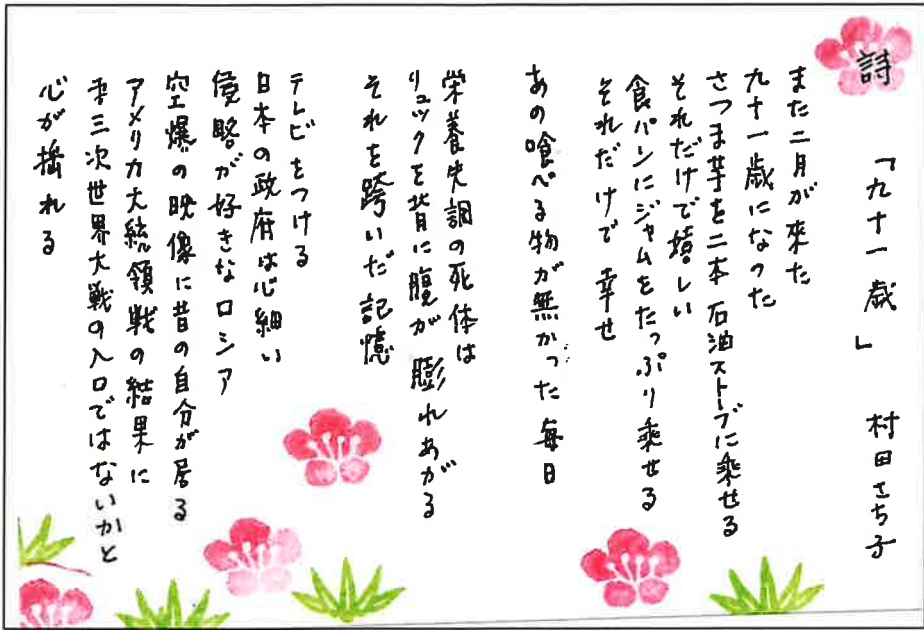 詩
「九十一歳」 村田さち子
また二月が来た
九十一歳になった
さつま芋を二本 石油ストーブに乗せる
それだけで嬉しい
食パンにジャムをたっぷり乗せる
それだけで 幸せ
あの喰べる物が無かった毎日
栄養失調の死体は
リュックを背に腹が 膨れあがる
それを跨いだ記憶
テレビをつける
日本の政府は心細い
侵略が好きなロシア
空爆の映像に昔の自分が居る
アメリカ大統領戦の結果に
第三次世界大戦の入口ではないかと
心が揺れる